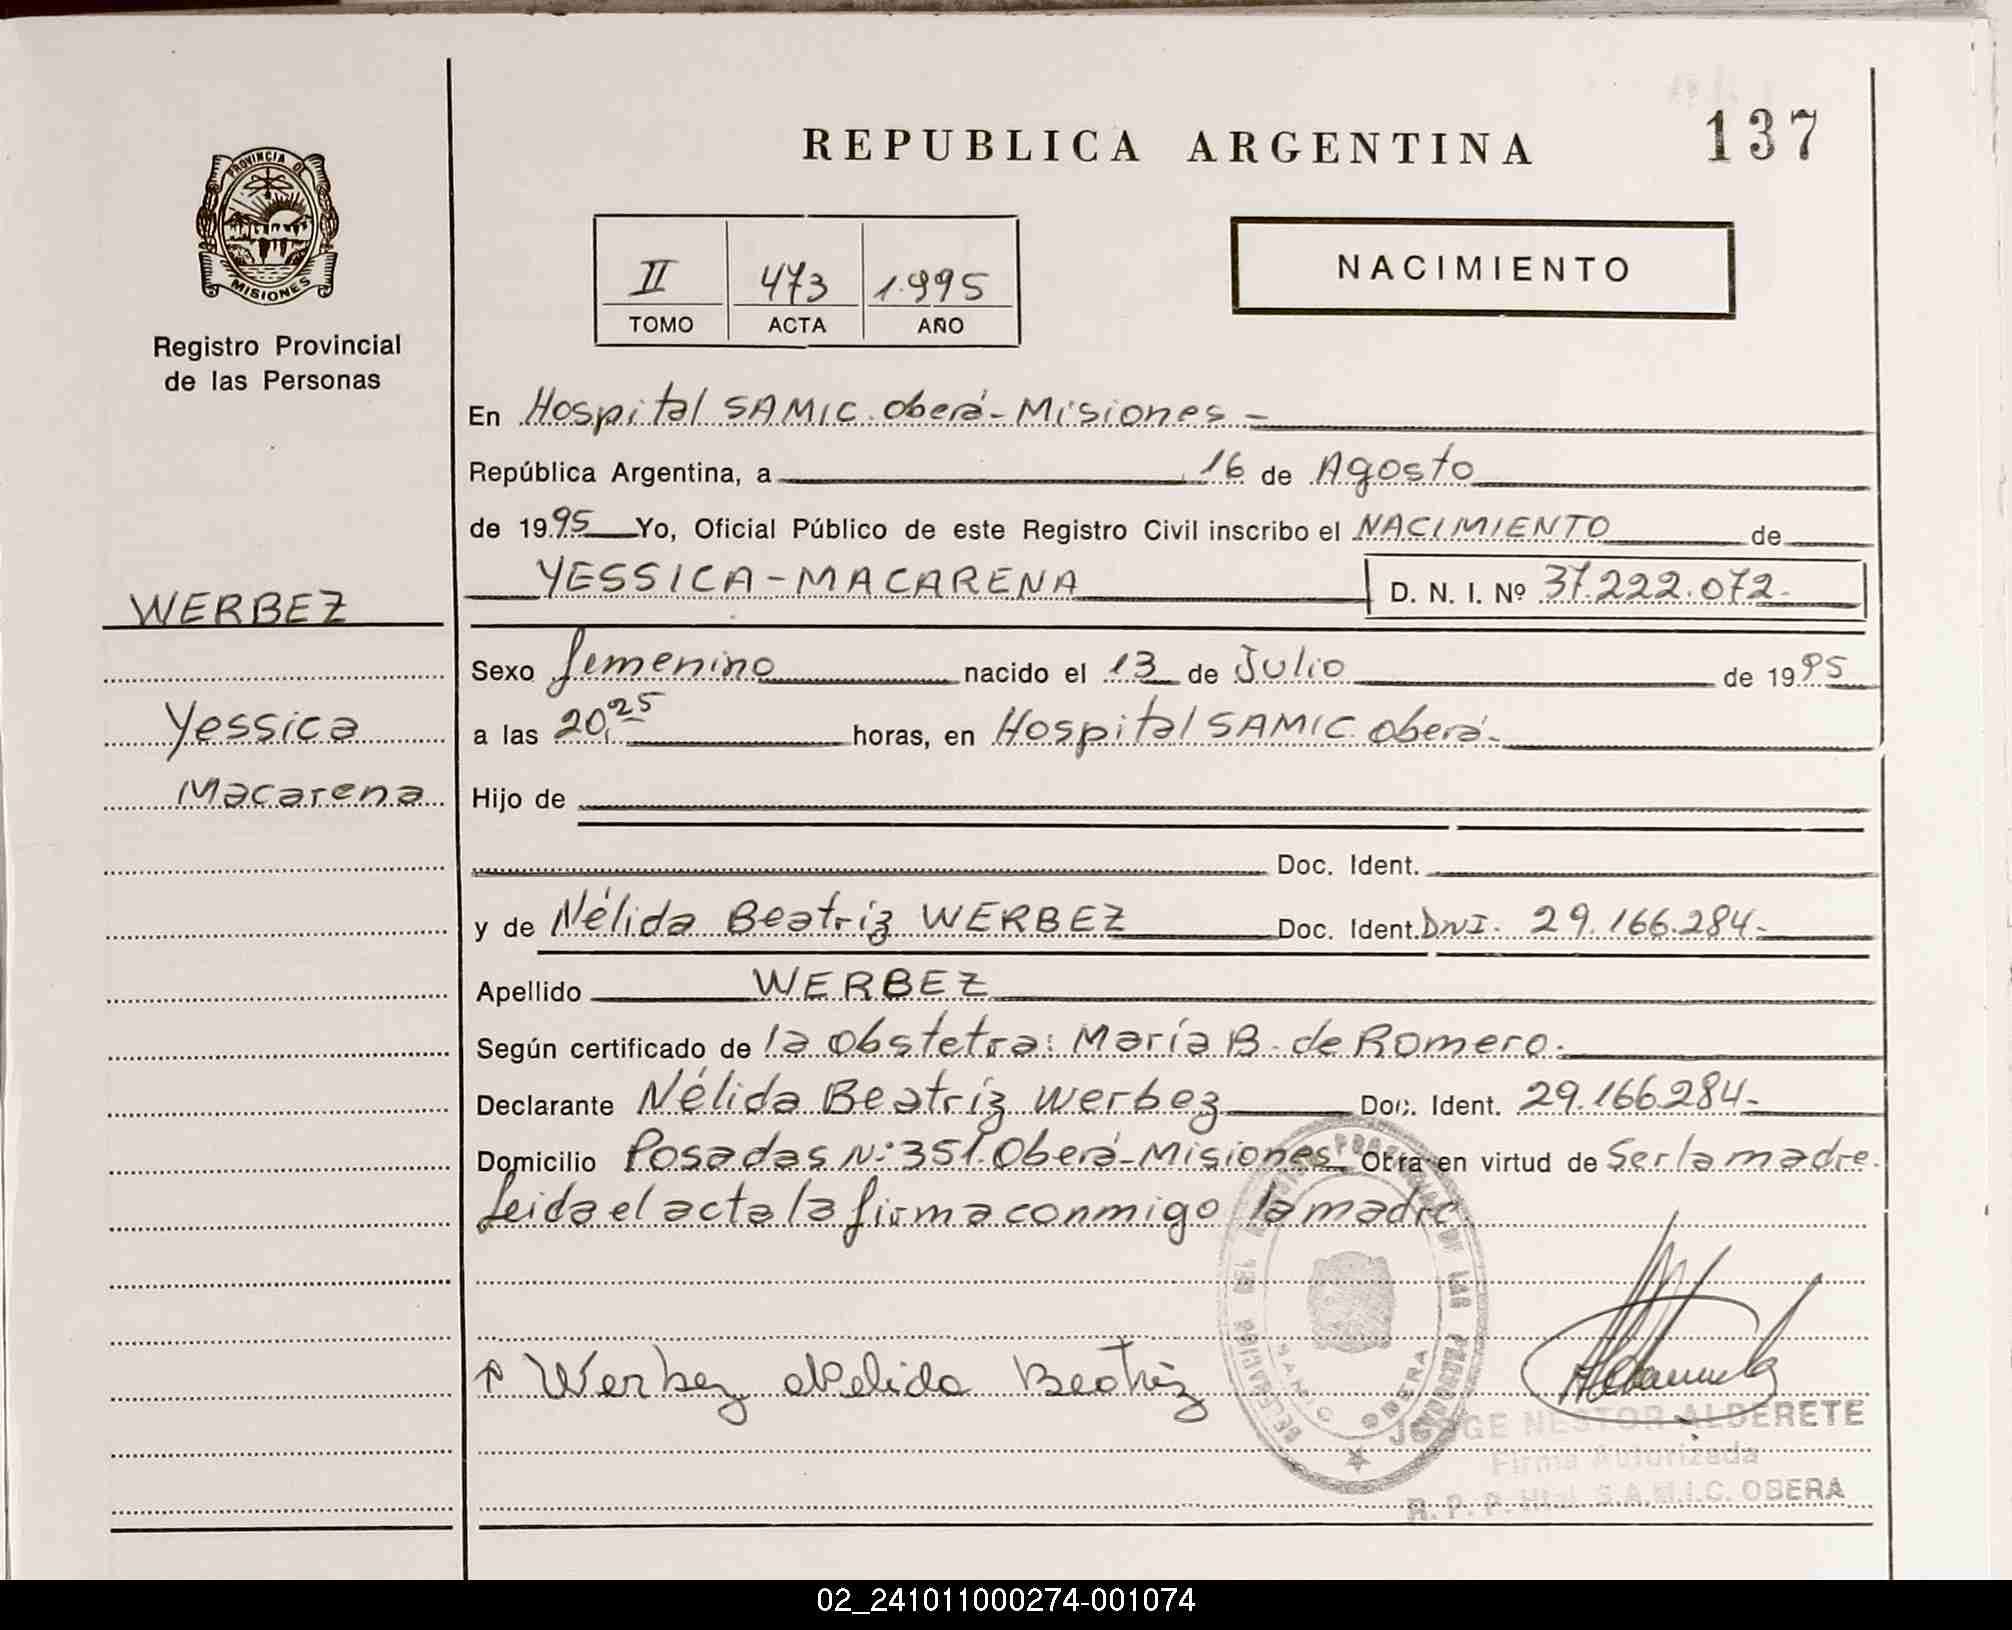 REPUBLICA ARGENTINA
137
PROVINCIA DE
MISIONES
Registro Provincial
de las Personas
II 473 1.995
TOMO ACTA AÑO
NACIMIENTO
En Hospital SAMIC. Oberá-Misiones-
República Argentina, a 16 de Agosto
de 1995 Yo, Oficial Público de este Registro Civil inscribo el NACIMIENTO de
YESSICA-MACARENA D. N. I. Nº 37.222.072-
WERBEZ
Yessica
Macarena
Sexo femenino nacido el 13 de Julio de 1995
a las 20,25 horas, en Hospital SAMIC. Oberá-
Hijo de
Doc. Ident.
y de Nélida Beatríz WERBEZ Doc. Ident. DNI. 29.166.284-
Apellido WERBEZ
Según certificado de la Obstetra: María B. de Romero.
Declarante Nélida Beatríz Werbez Doc. Ident. 29.166.284-
Domicilio Posadas Nº 351. Oberá-Misiones Obra en virtud de Ser la madre.
Leida el acta la firma conmigo la madre.
Werbez Nelida Beatriz
OBERA
JORGE NESTOR ALDERETE
Firma Autorizada
R. P. P. Htal. S.A.M.I.C. OBERA
02_241011000274-001074